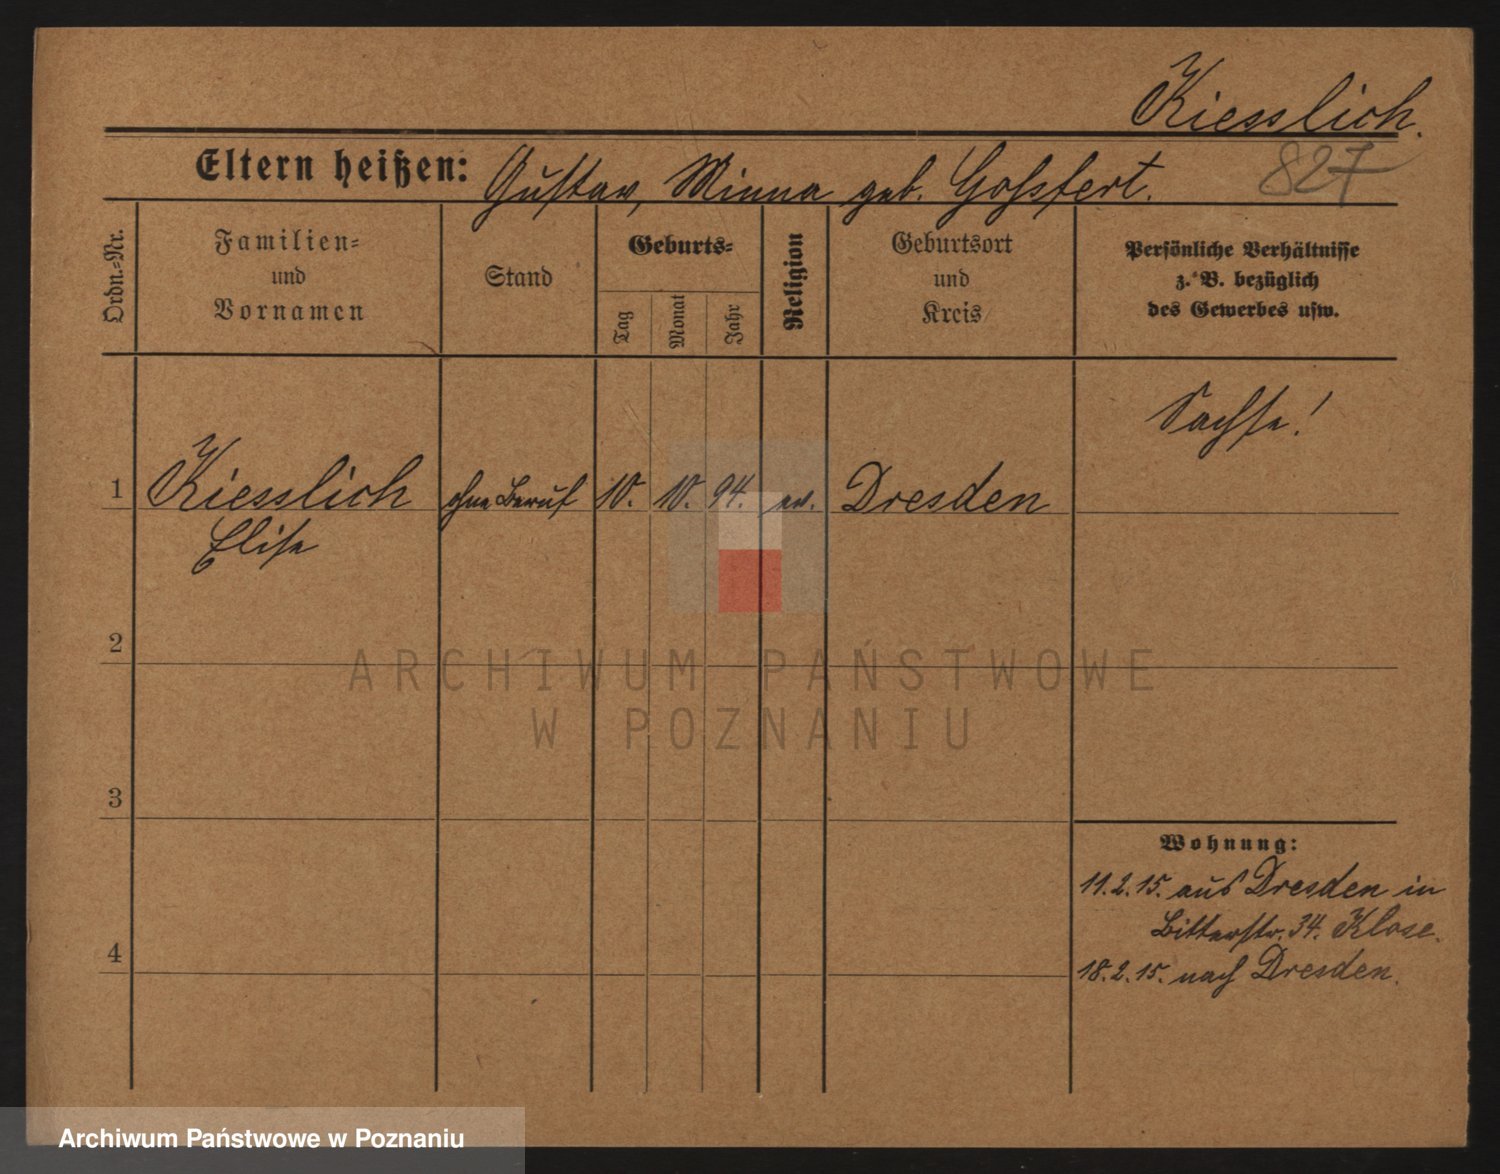 Kiesslich.
827
Eltern heißen: Gustav, Minna geb. Gossfert.
Ordn.=Nr.
Familien=
und
Vornamen
Stand
Geburts=
Tag
Monat
Jahr
Religion
Geburtsort
und
Kreis
Persönliche Verhältnisse
z. B. bezüglich
des Gewerbes usw.
Sachse!
1 Kiesslich ohne Beruf 10. 10. 94. ev. Dresden
Elise
2
3
4
Wohnung:
11.2.15. aus Dresden in
Bitterstr. 34. Klose.
18.2.15. nach Dresden.
ARCHIWUM PAŃSTWOWE
W POZNANIU
Archiwum Państwowe w Poznaniu